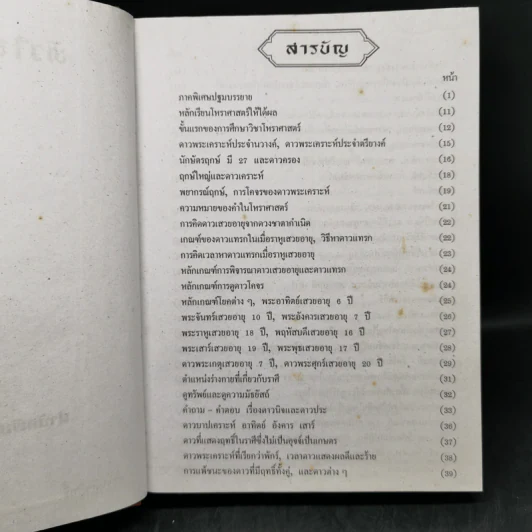 สารบัญ
หน้า
ภาคพิเศษปฐมบรรยาย (1)
หลักเรียนโหราศาสตร์ให้ได้ผล (11)
ขั้นแรกของการศึกษาวิชาโหราศาสตร์ (12)
ดาวพระเคราะห์ประจำนวางค์, ดาวพระเคราะห์ประจำตรียางค์ (15)
นักษัตรฤกษ์ มี 27 และดาวครอง (16)
ฤกษ์ใหญ่และดาวเคราะห์ (18)
พยากรณ์ฤกษ์, การโคจรของดาวพระเคราะห์ (19)
ความหมายของคำในโหราศาสตร์ (21)
การคิดดาวเสวยอายุจากดวงชาตากำเนิด (22)
เกณฑ์ของดาวแทรกในเมื่อราหูเสวยอายุ, วิธีหาดาวแทรก (22)
การคิดเวลาหาดาวแทรกเมื่อราหูเสวยอายุ (23)
หลักเกณฑ์การพิจารณาดาวเสวยอายุและดาวแทรก (24)
หลักเกณฑ์การดูดาวโคจร (24)
หลักเกณฑ์โยคต่าง ๆ, พระอาทิตย์เสวยอายุ 6 ปี (25)
พระจันทร์เสวยอายุ 10 ปี, พระอังคารเสวยอายุ 7 ปี (26)
พระราหูเสวยอายุ 18 ปี, พฤหัสบดีเสวยอายุ 16 ปี (27)
พระเสาร์เสวยอายุ 19 ปี, พระพุธเสวยอายุ 17 ปี (28)
ดาวพระเกตุเสวยอายุ 7 ปี, ดาวพระศุกร์เสวยอายุ 20 ปี (29)
ตำแหน่งร่างกายที่เกี่ยวกับราศี (31)
ดูทรัพย์และดูความมัธยัสถ์ (32)
คำถาม - คำตอบ เรื่องดาวนิจและดาวประ (33)
ดาวบาปเคราะห์ อาทิตย์ อังคาร เสาร์ (36)
ดาวที่แสดงฤทธิ์ในราศีซึ่งไม่เป็นอุจจ์เป็นเกษตร (37)
ดาวพระเคราะห์ที่เรียกว่าพักร์, เวลาดาวแสดงผลดีและร้าย (38)
การแพ้ชนะของดาวที่มีฤทธิ์ทั้งคู่, และดาวต่าง ๆ (39)